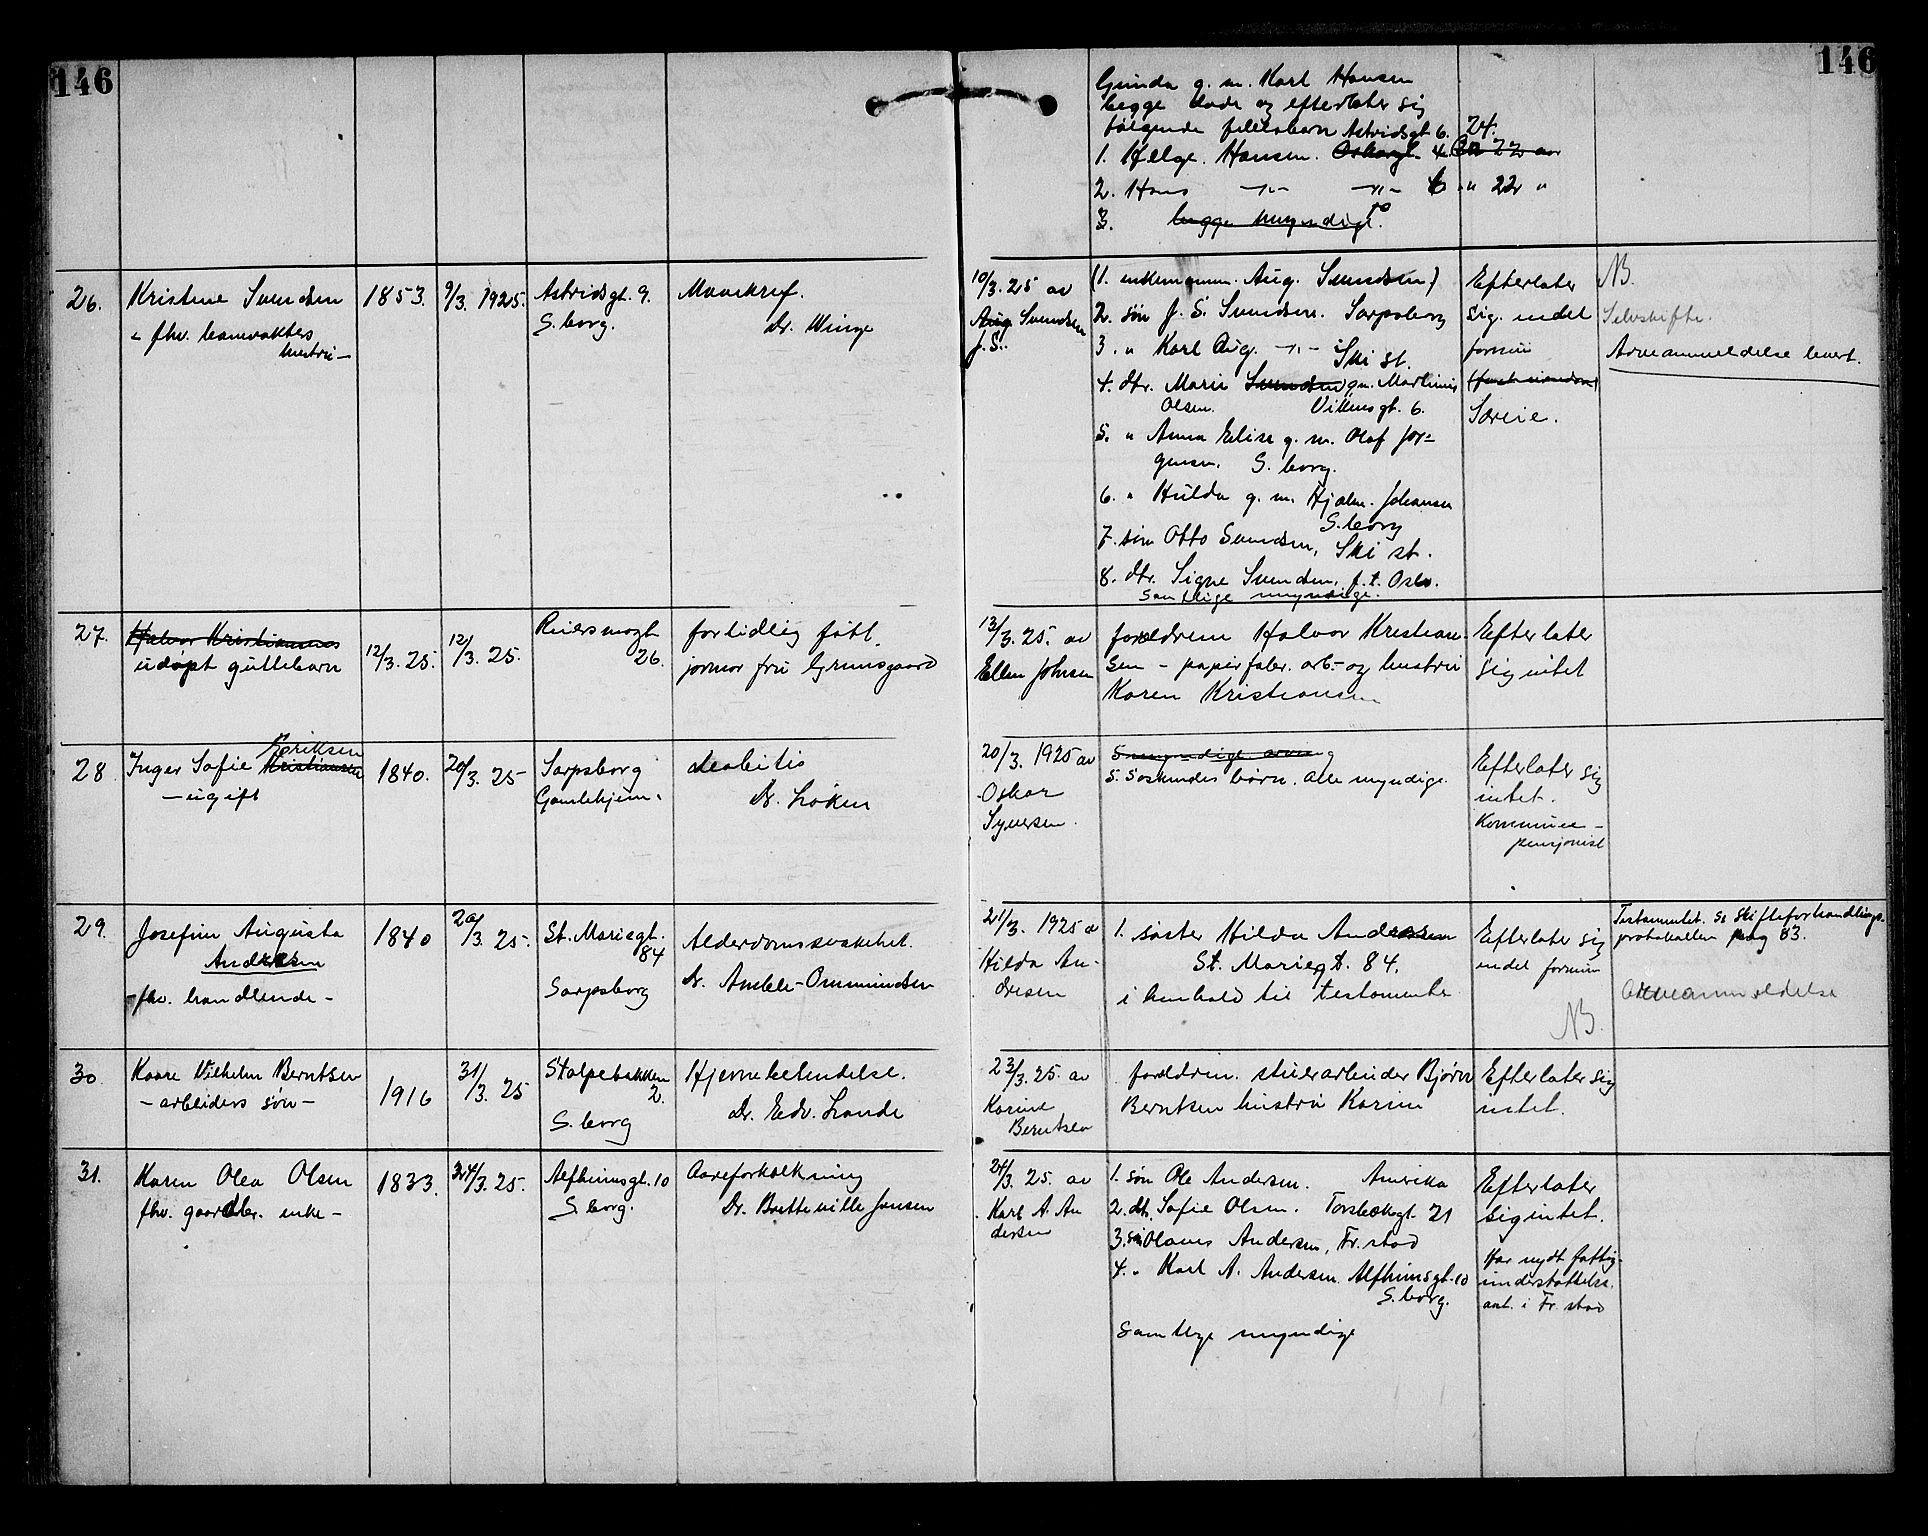 146
146
Gunda g. m. Karl Hansen
begge døde og efterlater sig
følgende fellesbarn Astridsgt 6. 24.
1. Helge Hansen. Oskarsgt. 4. 22 aar
2. Hans -"- -"- 6 " 22 "
3. begge myndige.
26. Kristine Svendsen 1853. 9/3. 1925. Astridsgt. 9. Mavekref.
S.borg. Dr. Winge
- fhv. banevakters
hustru -
10/3. 25 av
Aug. Svendsen
J. S.
(1. enkemann. Aug. Svendsen)
2. søn J. S. Svendsen. Sarpsborg
3. " Karl Aug. -"- Ski st.
4. dtr. Marie Svendsen gm. Martinius
Olsen. Vikensgt. 6.
5. " Anna Elise g. m. Olaf Jør-
gensen. S.borg.
6. " Hulda g. m. Hjalm. Johansen
S.borg
7. søn Otto Svendsen, Ski st.
8. dtr. Signe Svendsen, f.t. Oslo.
samtlige myndige.
Efterlater
sig. endel
formue
Særeie.
NB.
Selvskifte.
Arveanmeldelse levert.
27. Halvor Kristiansens
udøpt guttebarn 12/3. 25. 12/3. 25. Reiersmogt.
26. for tidlig født.
jormor fru Grimsgaard
13/3. 25. av
Ellen Johnsen
foreldrene Halvor Kristian-
sen - papirfabr. arb.- og hustru
Karen Kristiansen
Efterlater
sig intet
28. Inger Sofie Kristiansen Eriksen
- ugift 1840. 20/3. 25 Sarpsborg
Gamlehjem.
deabitis
Dr. Løken
20/3. 1925 av
Oskar
Syversen.
5 myndige arving
5. søskendes børn. alle myndige.
Efterlater sig
intet.
Kommune-
pensjonist
29. Josefine Augusta
Andresen
- fhv. handlende - 1840 20/3. 25. St. Mariegt.
84
Sarpsborg
Alderdomssvakhet.
Dr. Amble-Ommundsen
21/3. 1925 a
Hilda An-
dresen
1. søster Hilda Andresen
St. Mariegt. 84.
i henhold til testamente
Efterlater sig
endel formue
NB.
Testamentet. Se skifteforhandlings-
protokollen pag 83.
Arveanmeldelse
30. Kaare Vilhelm Berntsen
- arbeiders søn - 1916 31/3. 25 Stolpebakken
2.
S.borg
Hjernebetendelse.
Dr. Edv. Lande
23/3. 25. av
Karine
Berntsen
foreldrene. stuerarbeider Bjørn
Berntsen hustru Karine
Efterlater sig
intet.
31. Karen Olea Olsen
fhv. gaardbr. enke - 1833. 24/3. 25. Alfheimsgt. 10
S.borg.
Aareforkalkning
Dr. Bretteville Jensen
24/3. 25. av
Karl A. An
dersen
1. søn Ole Andersen. Amerika
2. dtr. Sofie Olsen. Torsbekkgt. 21
3. søn Olaves Andersen, Fr.stad
4. " Karl A. Andersen Alfheimsgt. 10
S.borg.
Samtlige myndige
Efterlater
sig intet.
Har nydt fattig-
understøttelse.
ant. i Fr.stad